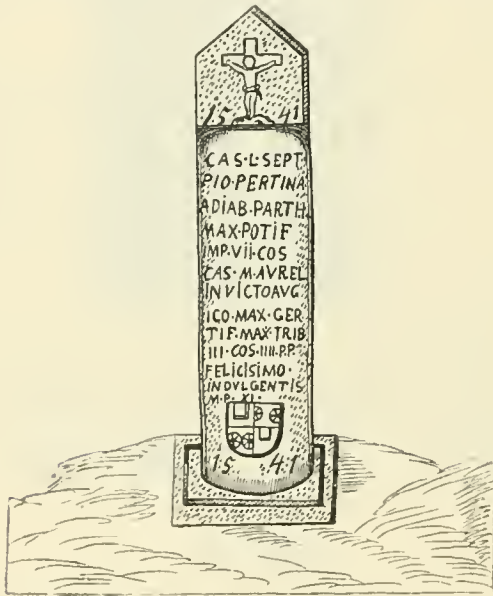 15 41
CAS·L·SEPT·
PIO·PERTINA
ADIAB·PARTH
MAX·POTIF
IMP·VII·COS
CAS·M·AVREL
INVICTOAVG
ICO·MAX·GER
TIF·MAX·TRIB
III·COS·IIII·P.P.
FELICISIMO·
INDVLGENTIS
M·P·XI·
15 41